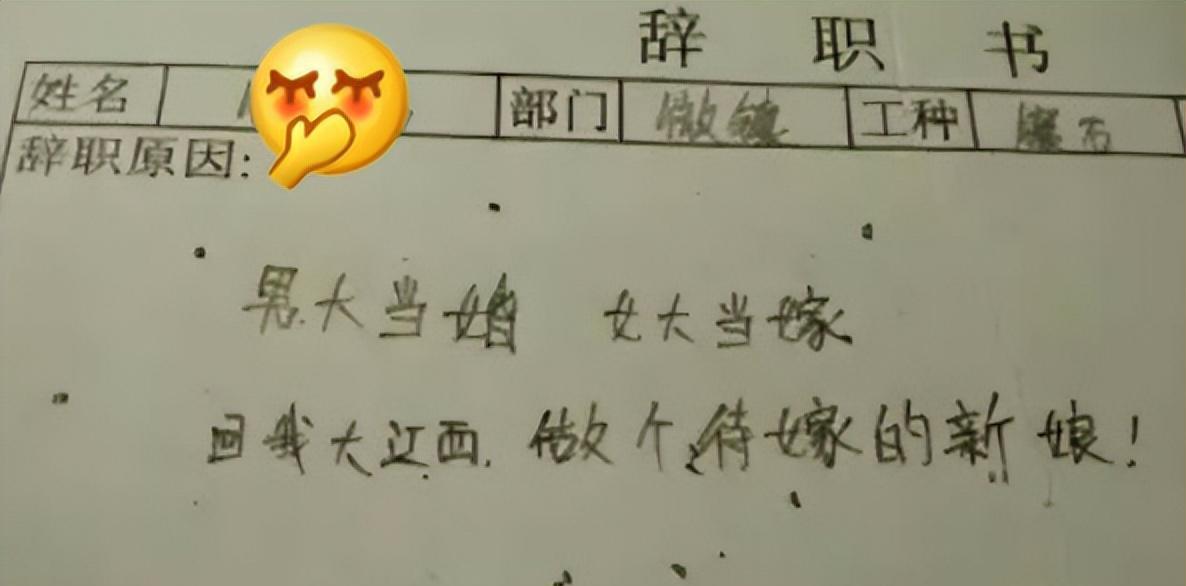 辞职书
姓名 部门 微镶 工种
辞职原因:
男大当婚 女大当嫁
回我大江西.做个待嫁的新娘!